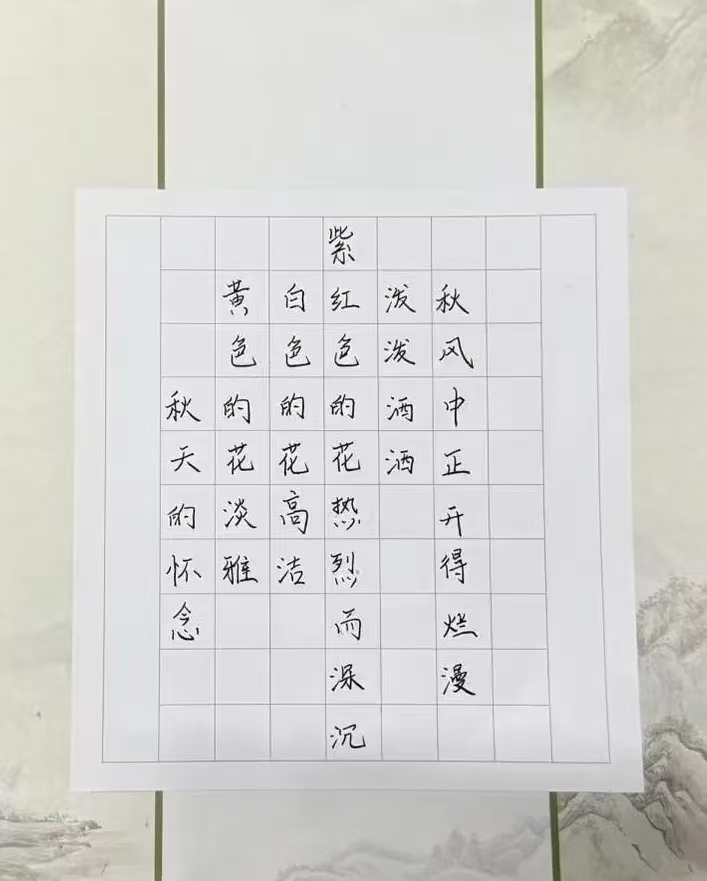 秋天的怀念
黄色的花淡雅
白色的花高洁
紫红色的花热烈而深沉
泼泼洒洒
秋风中正开得烂漫